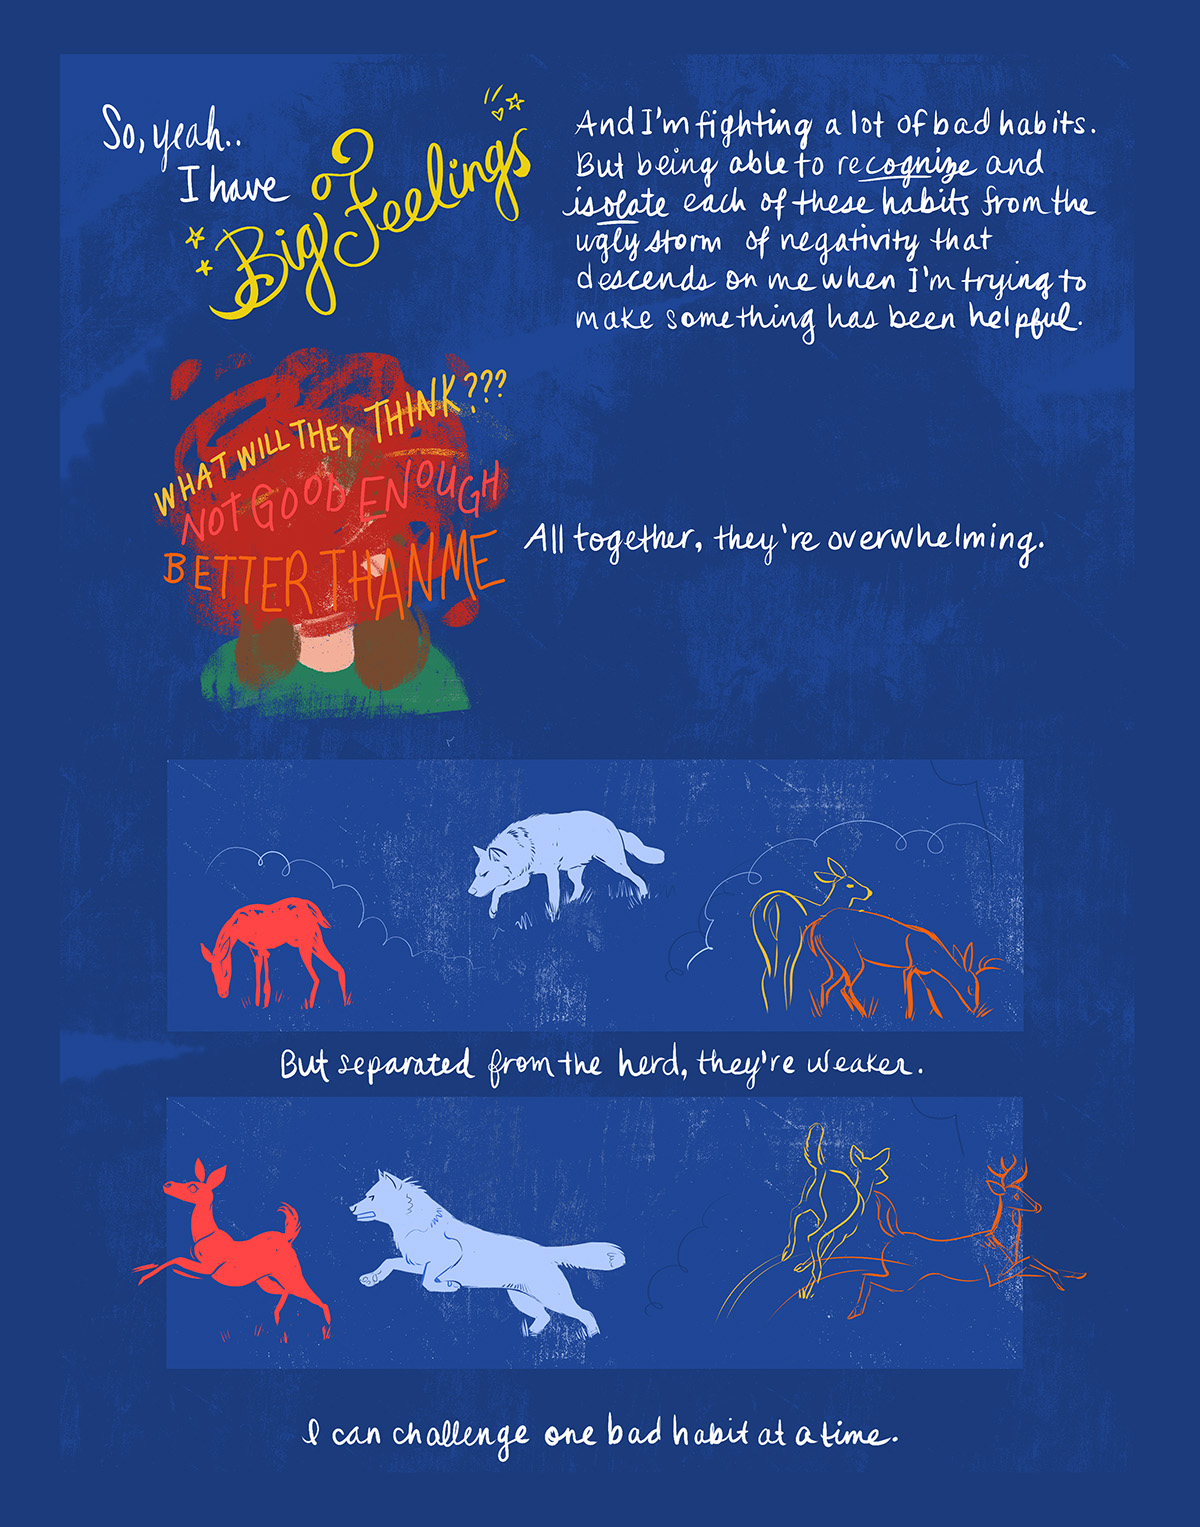 So, yeah..
I have
Big Feelings
And I'm fighting a lot of bad habits.
But being able to recognize and
isolate each of these habits from the
ugly storm of negativity that
descends on me when I'm trying to
make something has been helpful.
WHAT WILL THEY THINK???
NOT GOOD ENOUGH
BETTER THAN ME
All together, they're overwhelming.
But separated from the herd, they're weaker.
I can challenge one bad habit at a time.